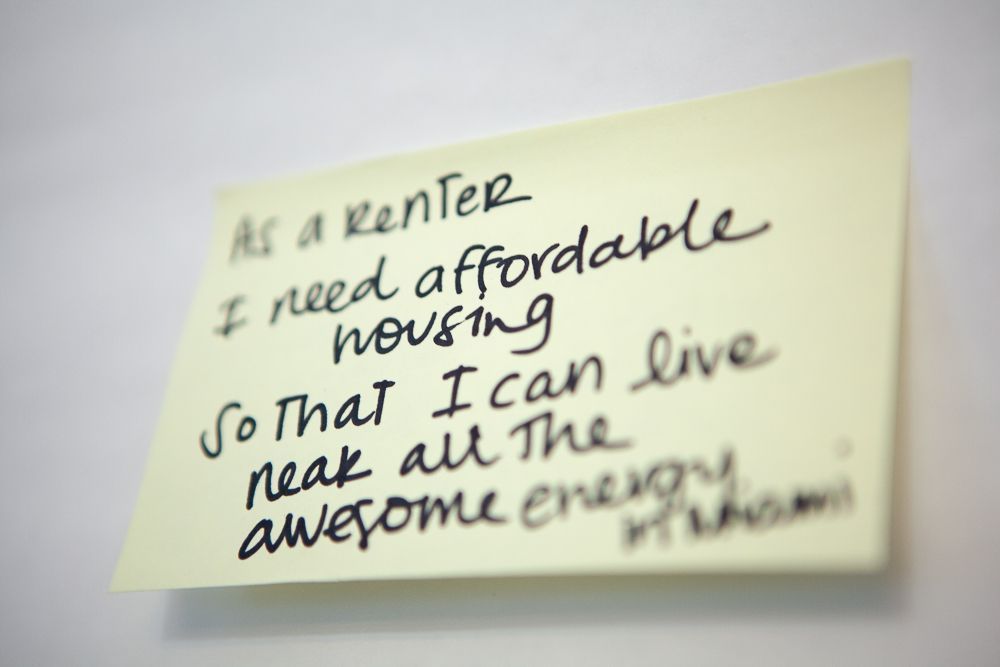 As a Renter
I need affordable
housing
So That I can live
near all the
awesome energy